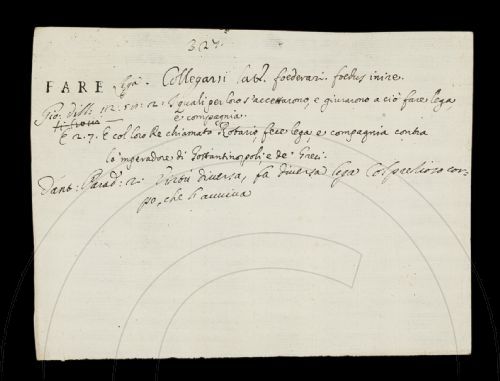 327.
FARE lega. Collegarsi lat. foederari. foedus inire.
Gio: Vill: 12. 2. I quali per loro s'accettarono, e giurarono a ciò fare lega,
e compagnia.
E 2. 7. E col loro Re chiamato Rotario, fece lega e compagnia contra
lo 'mperadore di Gostantinopoli e de' Greci.
Dant: Parad: 2. Virtù diversa, fa diversa lega Col prezioso cor-
po, che l'avviva